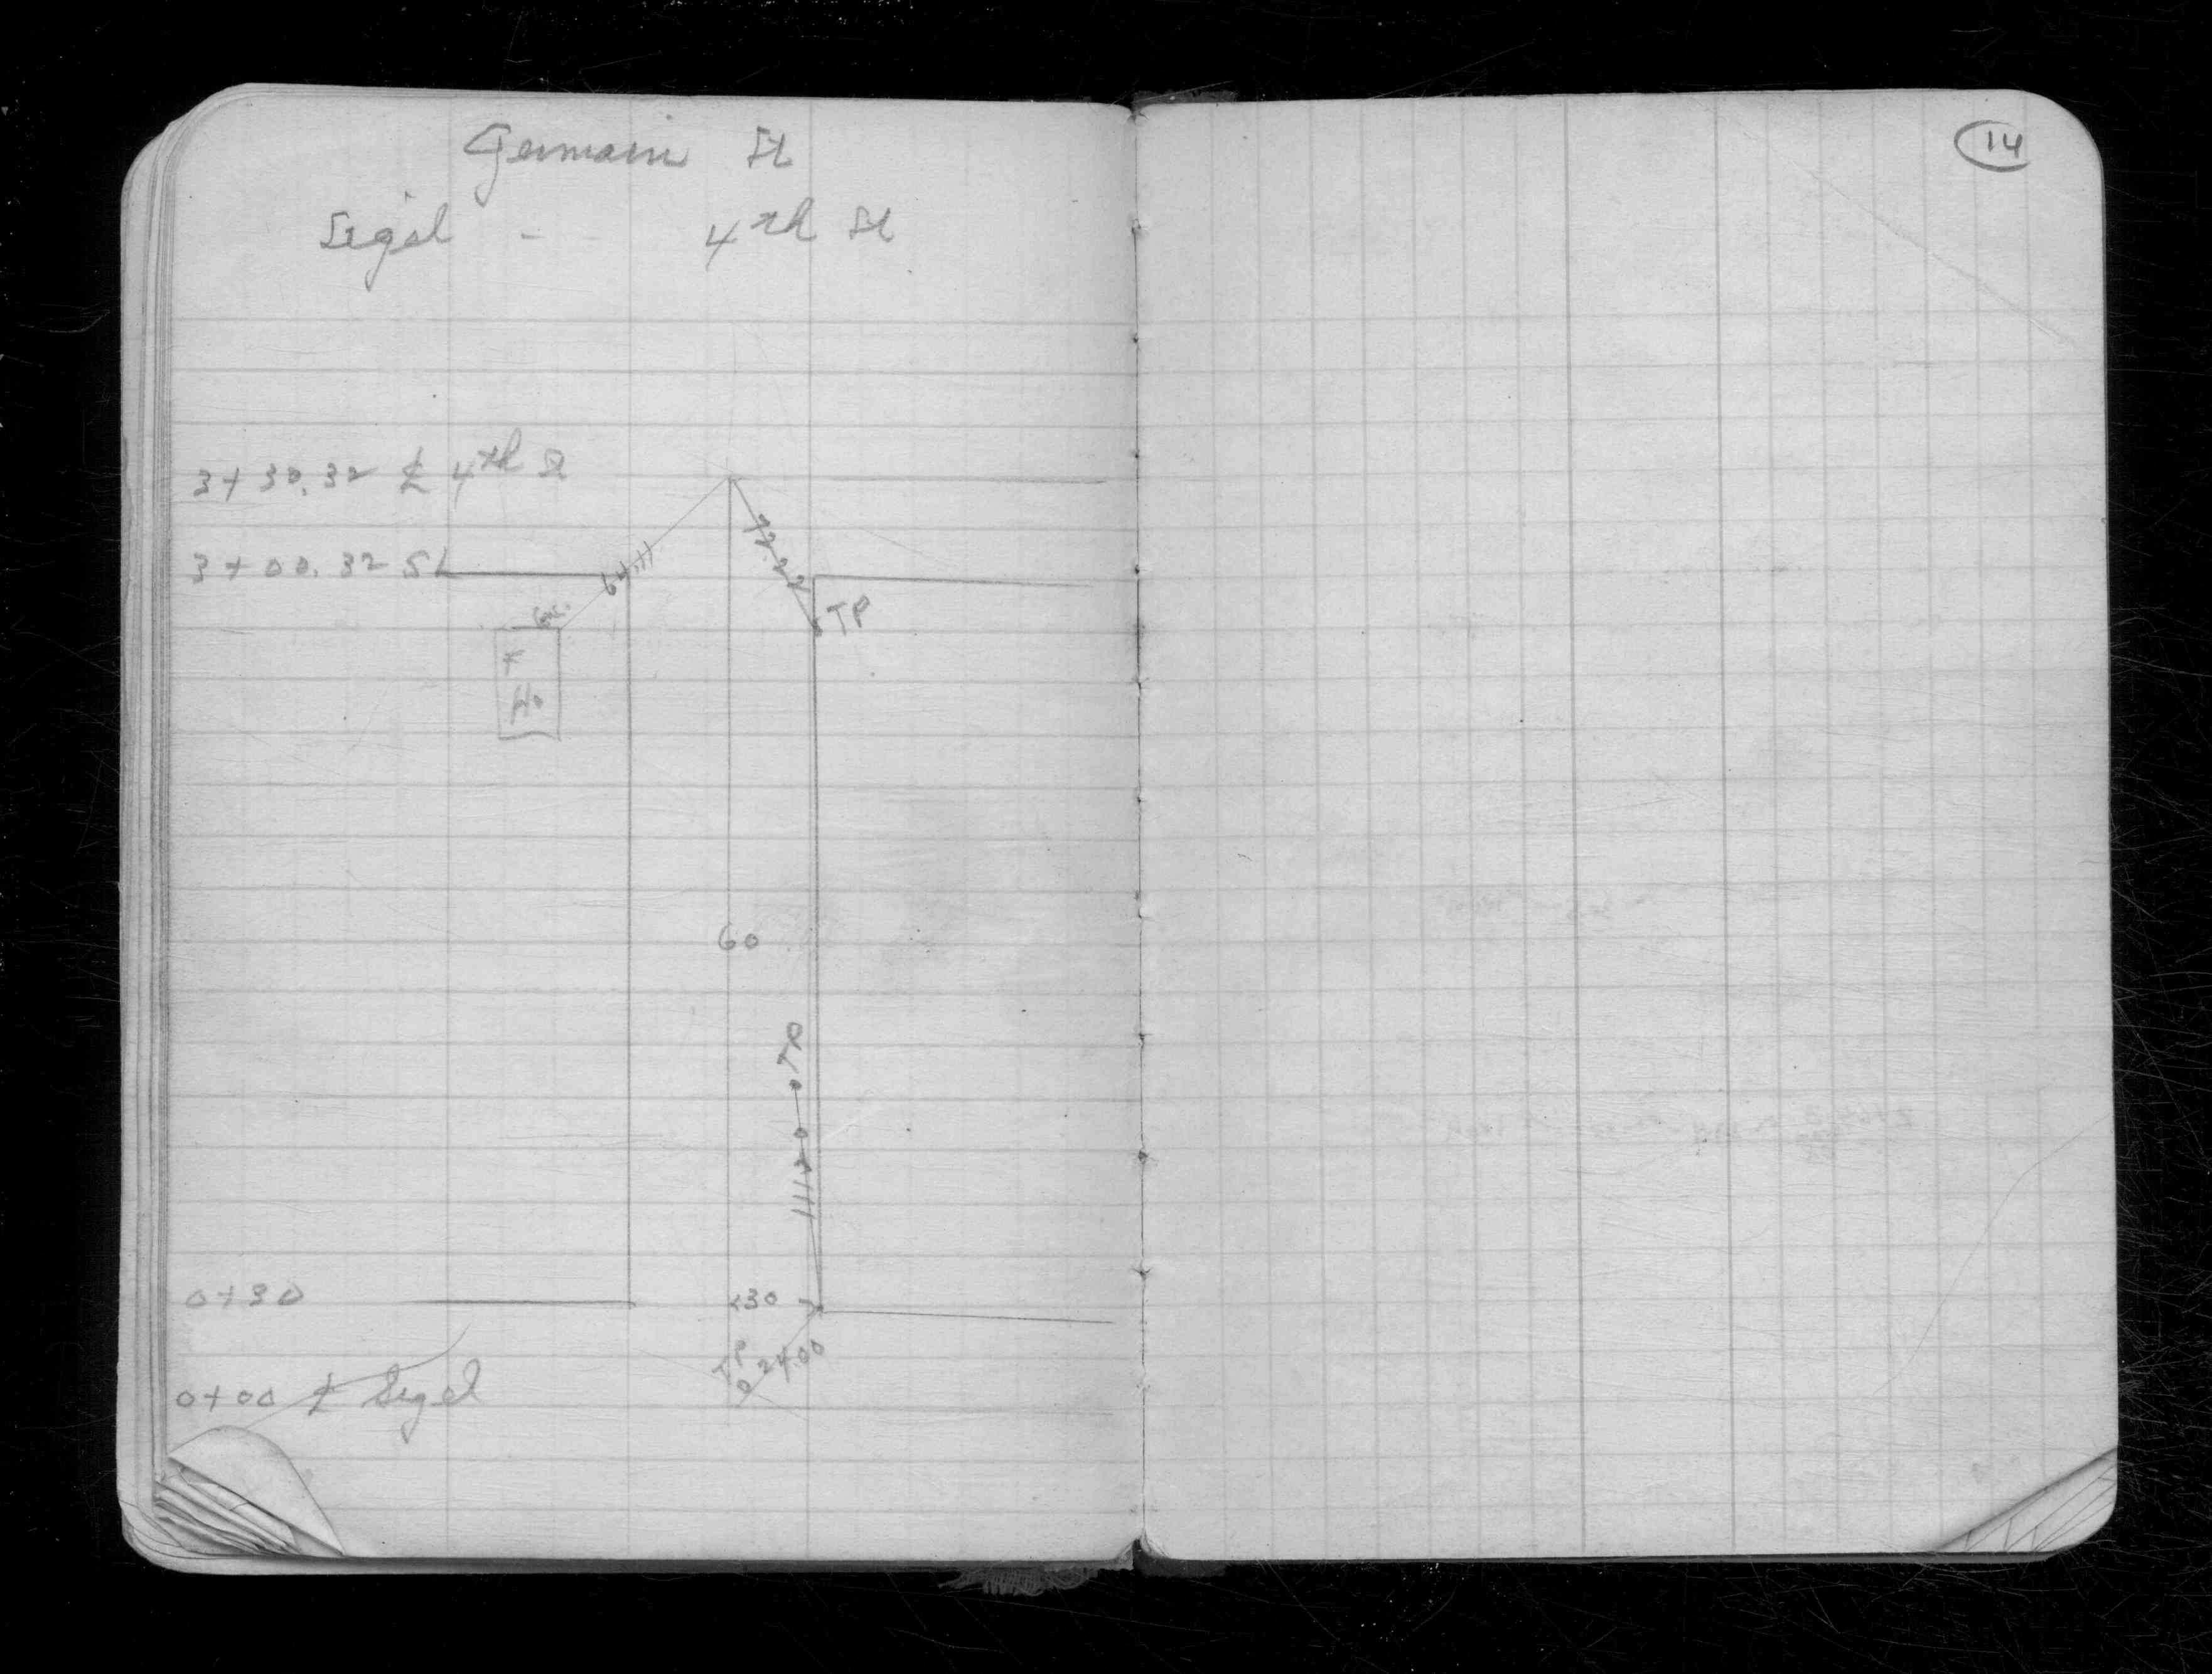 Germain St
Sigel - - 4th St
14
3+30.32 ℄ 4th St
72.22
3+00.32 SL
64.11
TP
Cor.
F
Ho
60
TP
111.20
0+30
30
TP
24.00
0+00 ℄ Sigel